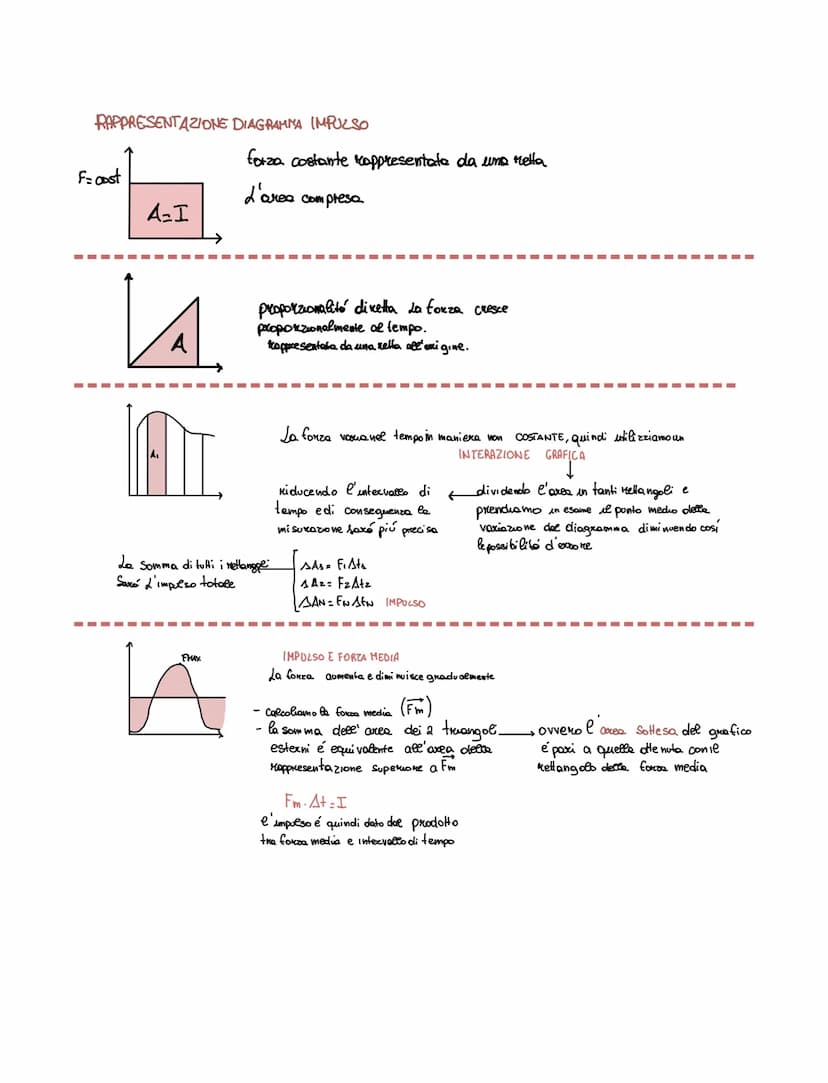 RAPPRESENTAZIONE DIAGRAMMA IMPULSO
F=cost
A=I
forza costante rappresentata da una retta
L'area compresa
A
proporzionalitá diretta La forza cresce
proporzionalmente al tempo.
Rappresentata da una retta all'origine.
A₁
La forza varia nel tempo in maniera non COSTANTE, quindi utilizziamo un
INTERAZIONE GRAFICA
dividendo l'area in tanti rettangoli e
prendiamo in esame il punto medio della
variazione del diagramma diminuendo cosí
le possibilitá d'errore
riducendo l'intervallo di
tempo e di conseguenza la
misurazione sará piú precisa
La somma di tutti i rettangoli
sará l'impulso totale
ΔA₁= F₁Δt₁
ΔA₂= F₂Δt₂
ΔAN= FNΔtN IMPULSO
FMAX
IMPULSO E FORZA MEDIA
La forza aumenta e diminuisce gradualmente
- Calcoliamo la forza media (Fm)
- la somma dell'area dei 2 triangoli
esterni é equivalente all'area della
rappresentazione superiore a Fm
ovvero l'area sottesa del grafico
é pari a quella ottenuta con il
rettangolo della forza media
Fm·Δt=I
l'impulso é quindi dato dal prodotto
tra forza media e intervallo di tempo